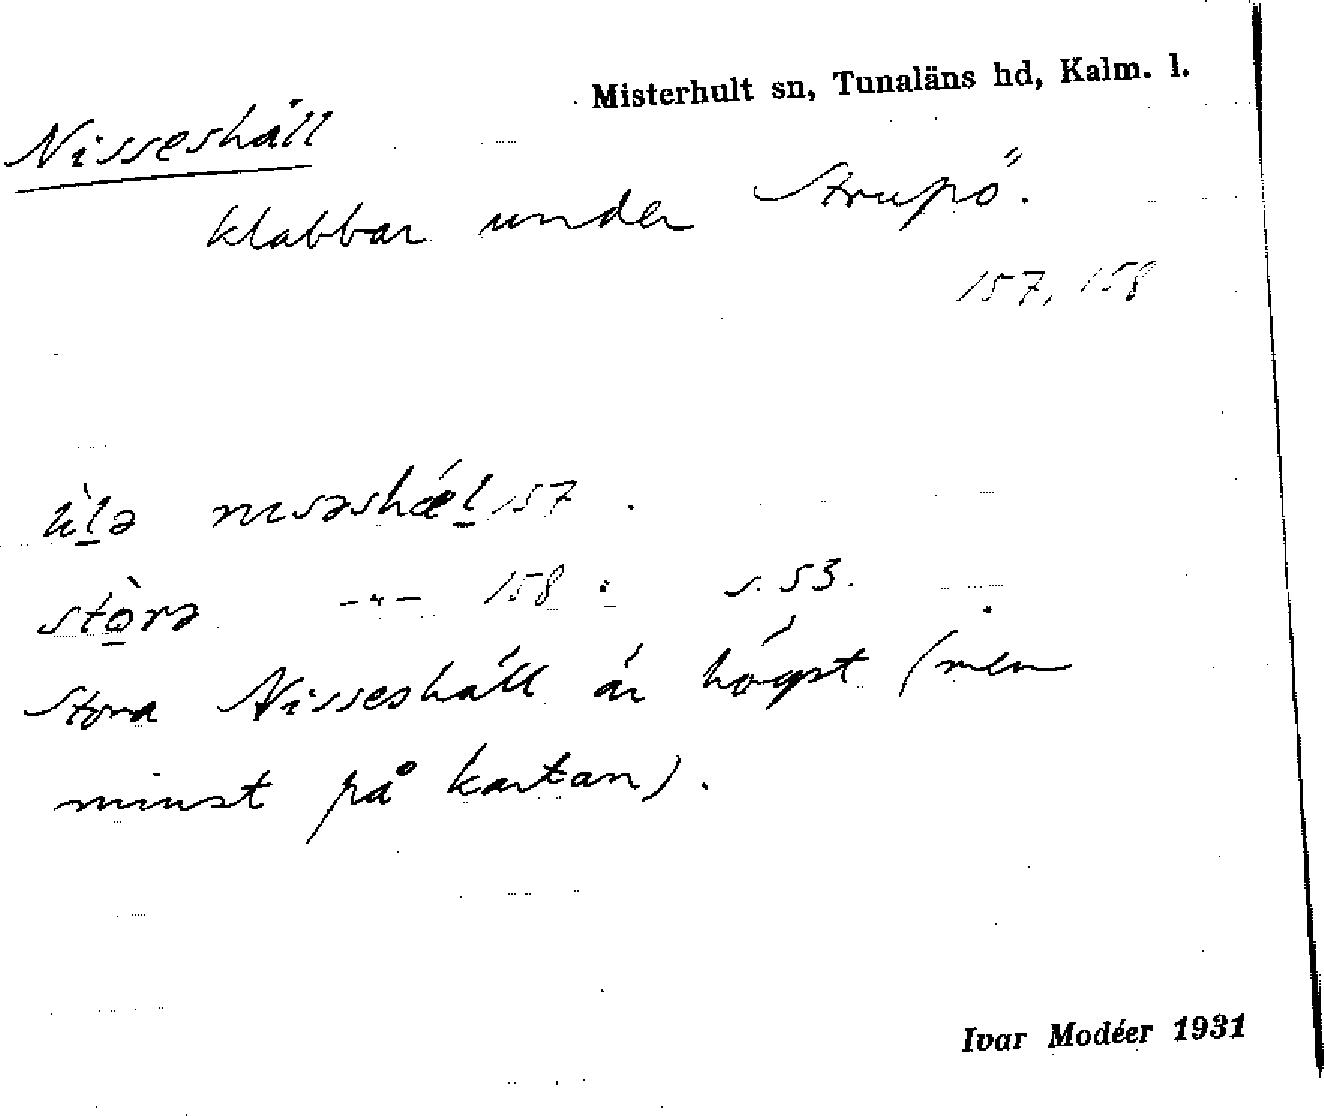 Misterhult sn, Tunaläns hd, Kalm. l.
Nisseshäll
klabbar under Strupö.
157, 158
lìlə nisəshæl 157.
stòrə —"— 158. s. 53.
Stora Nisseshäll är högst (men
minst på kartan).
Ivar Modéer 1931